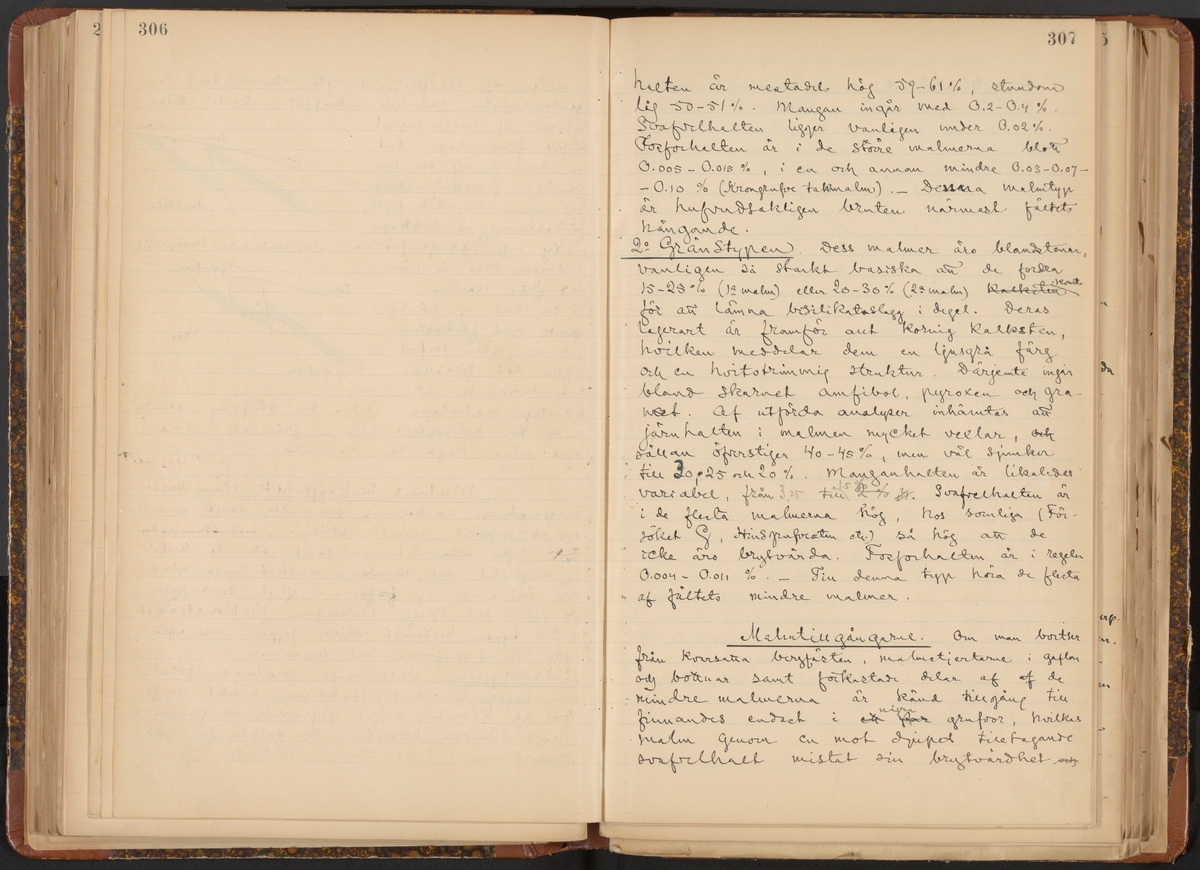 306
307
halten är mestadels hög 59-61%, stundom
låg 50-51%. Mangan ingår med 0.2-0.4%.
Svafvelhalten ligger vanligen under 0.02%.
Fosforhalten är i de större malmerna blott
0.005-0.015%, i en och annan mindre 0.03-0.07-
-0.10% (Krongrufve takmalm). — Denna malmtyp
är hufvudsakligen bruten närmast fältets
hängande.
2º Gränstypen. Dess malmer äro blandstenar,
vanligen så starkt basiska att de fordra
15-25% (1ª malm) eller 20-30% (2ª malm) kalksten kvarts
för att lämna bisilikatslagg i degel. Deras
lagerart är framför allt kornig kalksten,
hvilken meddelar dem en ljusgrå färg
och en hvitstrimmig struktur. Därjemte ingår
bland skarnet amfibol, pyroxen och gra-
nat. Af utförda analyser inhämtas att
järnhalten i malmen mycket vexlar, och
sällan öfverstiger 40-45%, men väl sjunker
till 30, 25 och 20%. Manganhalten är likaledes
variabel, från 3,25 till 15% 2%. Svafvelhalten är
i de flesta malmerna hög, hos somliga (För-
söket G, etc.) så hög att de
icke äro brytvärda. Fosforhalten är i regeln
0.004-0.011%. — Till denna typ höra de flesta
af fältets mindre malmer.
Malmtillgångarne. Om man bortser
från kvarsatta bergfästen, malmstjertarne i gaflar
och bottnar samt förkastade delar af af de
mindre malmerna är känd tillgång till
finnandes endast i ett par några grufvor, hvilkas
malm genom en mot djupet tilltagande
svafvelhalt mistat sin brytvärdhet och